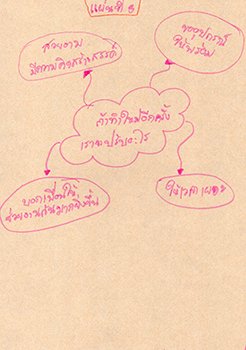 แผ่นที่ 3
สวยงาม
มีความคิดสร้างสรรค์
ขออุปกรณ์
ให้พร้อม
ถ้าทำใหม่อีกครั้ง
เราจะปรับอะไร
บอกเพื่อนให้
ช่วยงานกันมากยิ่งขึ้น
ให้เวลา